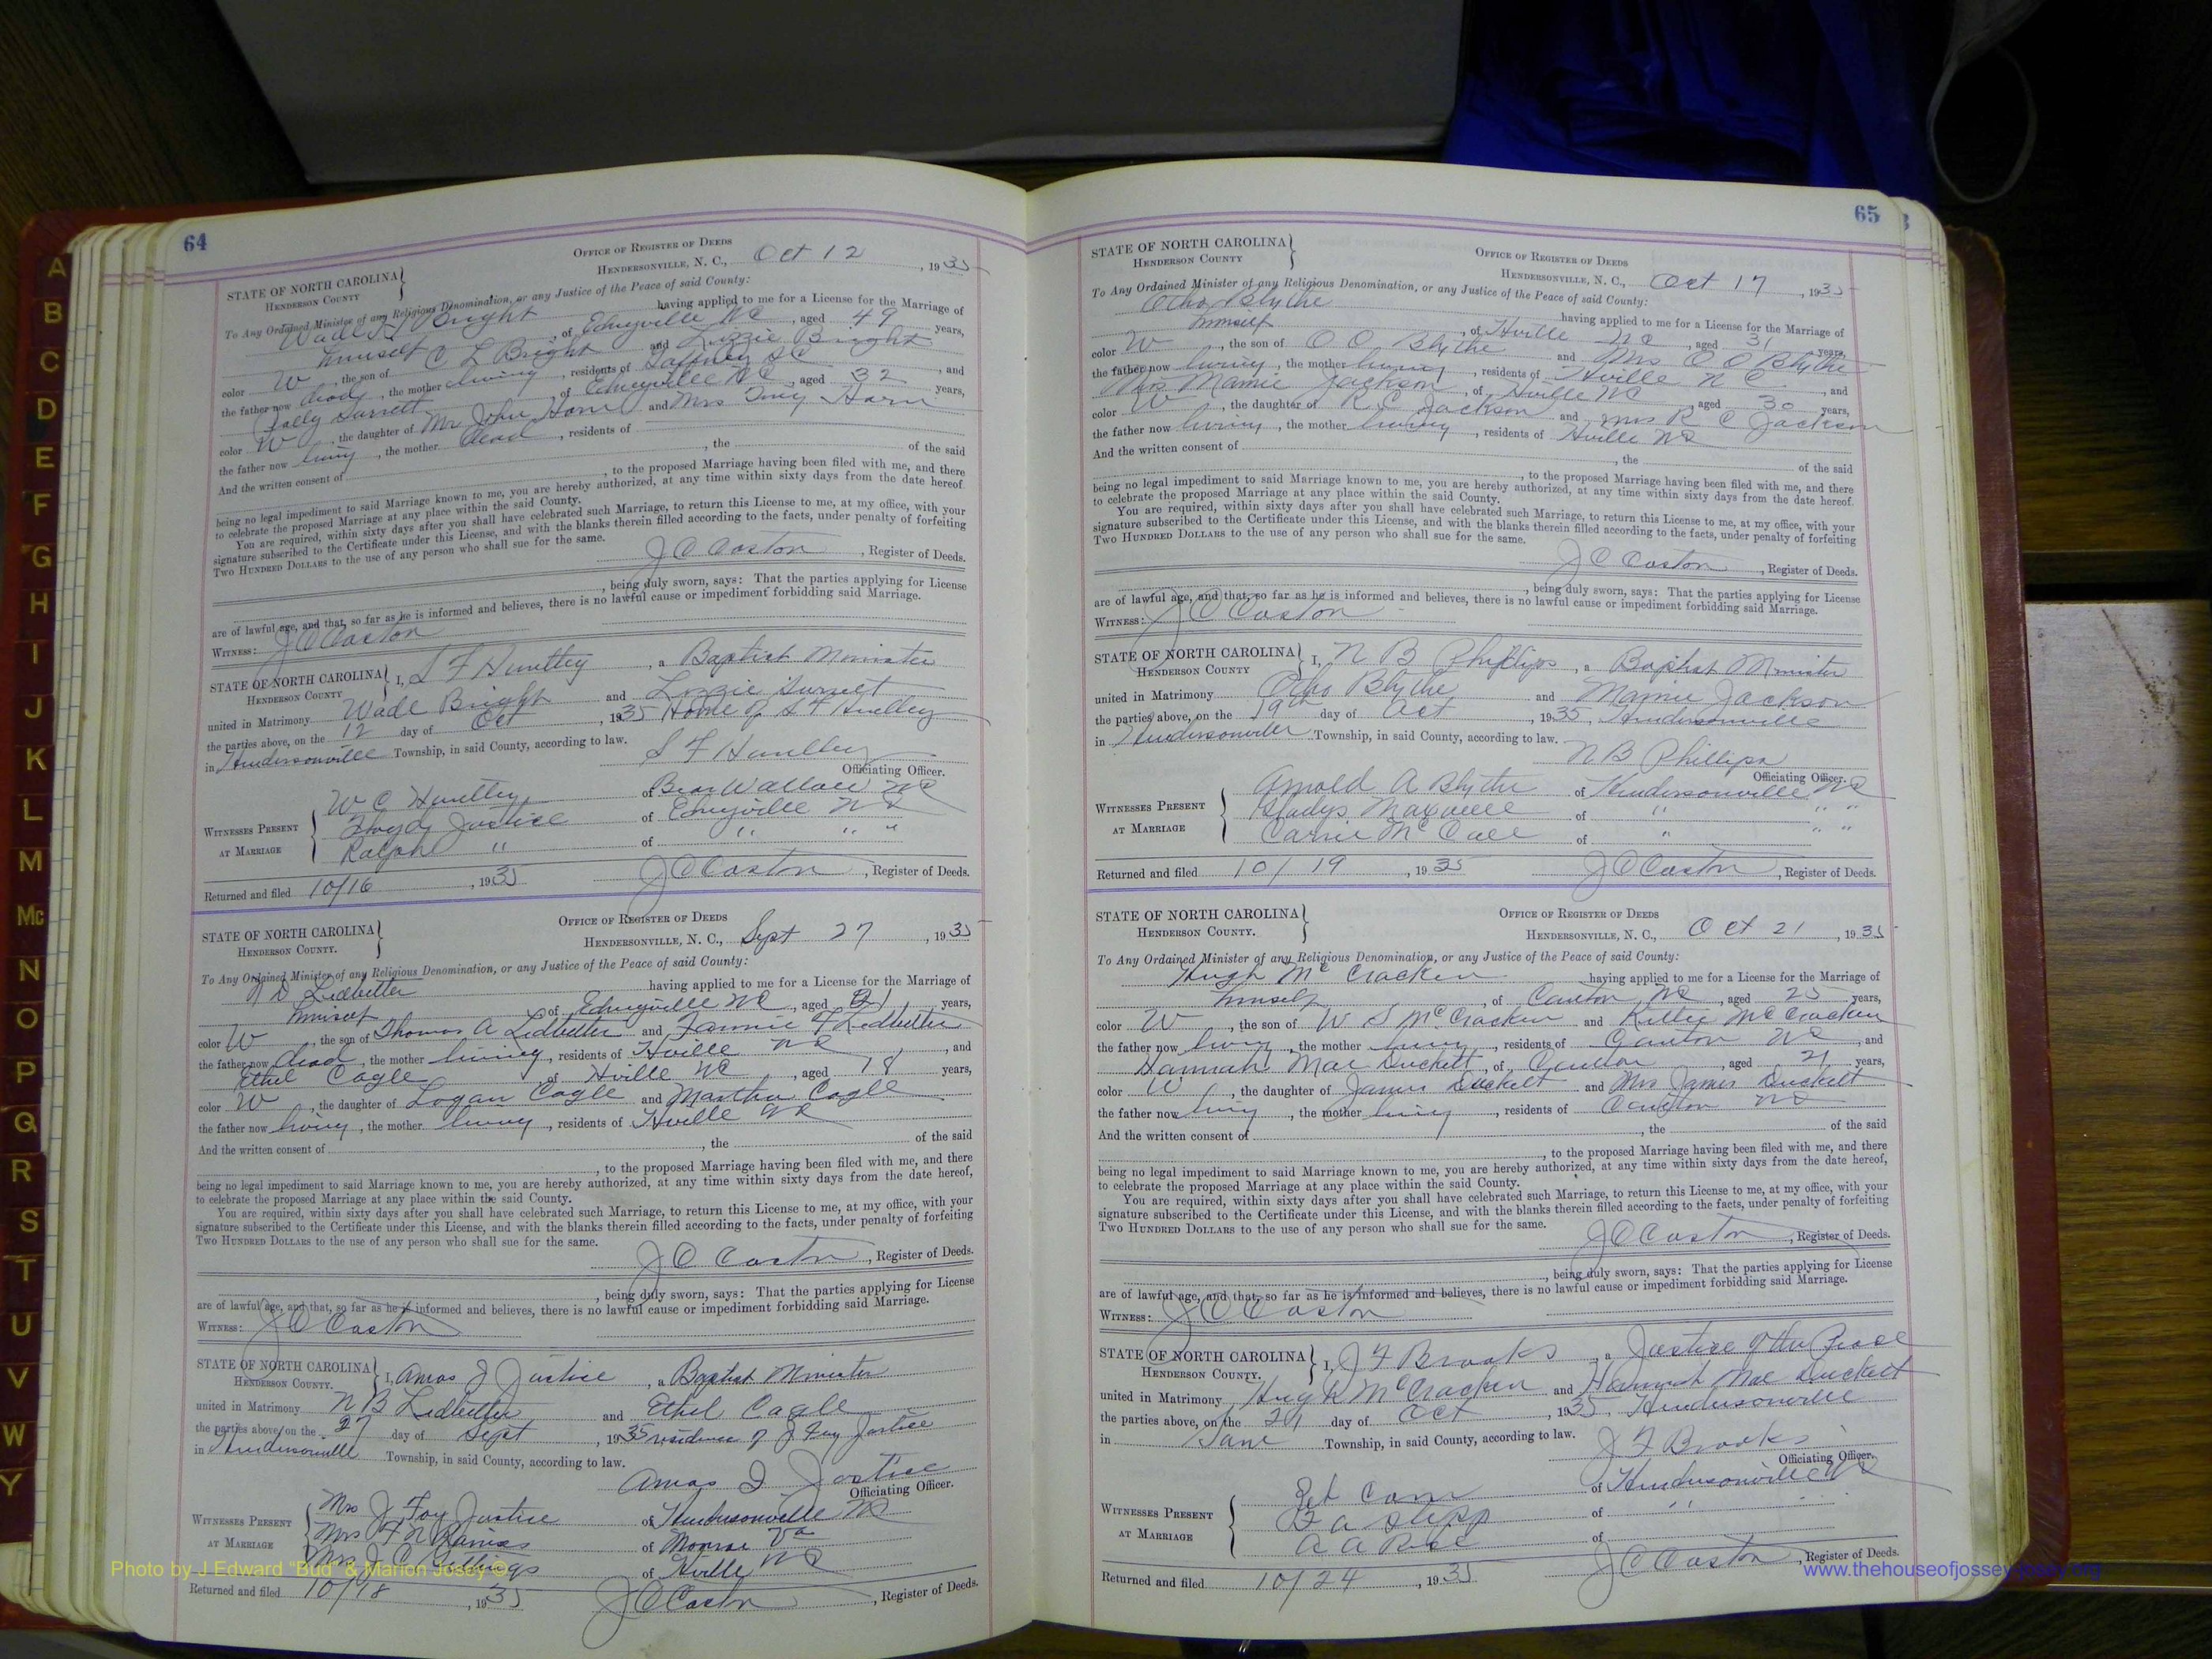 64
STATE OF NORTH CAROLINA
HENDERSON COUNTY
OFFICE OF REGISTER OF DEEDS
HENDERSONVILLE, N. C., Oct 12, 1935
To Any Ordained Minister of any Religious Denomination, or any Justice of the Peace of said County:
Wade Bright having applied to me for a License for the Marriage of
himself, of Edneyville NC, aged 49 years,
color W, the son of C L Bright and Lizzie Bright
the father now dead, the mother living, residents of Gaffney SC, and
Surrett, of Edneyville NC, aged 32 years,
color W, the daughter of Mr John Horn and Mrs Horn
the father now living, the mother dead, residents of
And the written consent of , the of the said
, to the proposed Marriage having been filed with me, and there
being no legal impediment to said Marriage known to me, you are hereby authorized, at any time within sixty days from the date hereof
to celebrate the proposed Marriage at any place within the said County.
You are required, within sixty days after you shall have celebrated such Marriage, to return this License to me, at my office, with your
signature subscribed to the Certificate under this License, and with the blanks therein filled according to the facts, under penalty of forfeiting
TWO HUNDRED DOLLARS to the use of any person who shall sue for the same.
J O Caston, Register of Deeds.
, being duly sworn, says: That the parties applying for License
are of lawful age, and that, so far as he is informed and believes, there is no lawful cause or impediment forbidding said Marriage.
WITNESS: J O Caston
STATE OF NORTH CAROLINA
HENDERSON COUNTY
I, S F Huntley, a Baptist Minister
united in Matrimony Wade Bright and Lizzie Surrett
the parties above, on the 12 day of Oct, 1935 Home of S F Huntley
in Hendersonville Township, in said County, according to law.
S F Huntley
Officiating Officer.
WITNESSES PRESENT
AT MARRIAGE
W C Huntley of Bear Wallow NC
Floyd Justice of Edneyville NC
Ralph " of " " "
Returned and filed 10/16, 1935 J O Caston, Register of Deeds.
STATE OF NORTH CAROLINA
HENDERSON COUNTY.
OFFICE OF REGISTER OF DEEDS
HENDERSONVILLE, N. C., Sept 27, 1935
To Any Ordained Minister of any Religious Denomination, or any Justice of the Peace of said County:
Ledbetter having applied to me for a License for the Marriage of
himself, of Edneyville NC, aged 21 years,
color W, the son of Thomas A Ledbetter and Fannie Ledbetter
the father now dead, the mother living, residents of Hville NC, and
Ethel Cagle of Hville NC, aged 18 years,
color W, the daughter of Logan Cagle and Martha Cagle
the father now living, the mother living, residents of Hville NC
And the written consent of , the of the said
, to the proposed Marriage having been filed with me, and there
being no legal impediment to said Marriage known to me, you are hereby authorized, at any time within sixty days from the date hereof,
to celebrate the proposed Marriage at any place within the said County.
You are required, within sixty days after you shall have celebrated such Marriage, to return this License to me, at my office, with your
signature subscribed to the Certificate under this License, and with the blanks therein filled according to the facts, under penalty of forfeiting
TWO HUNDRED DOLLARS to the use of any person who shall sue for the same.
J O Caston, Register of Deeds.
, being duly sworn, says: That the parties applying for License
are of lawful age, and that, so far as he is informed and believes, there is no lawful cause or impediment forbidding said Marriage.
WITNESS: J O Caston
STATE OF NORTH CAROLINA
HENDERSON COUNTY.
I, Amos I Justice, a Baptist Minister
united in Matrimony N B Ledbetter and Ethel Cagle
the parties above, on the 27 day of Sept, 1935 residence of J Foy Justice
in Hendersonville Township, in said County, according to law.
Amos I Justice
Officiating Officer.
WITNESSES PRESENT
AT MARRIAGE
Mrs J Foy Justice of Hendersonville NC
Mrs of Monroe Va
Mrs J C of Hville NC
Returned and filed 10/18, 1935 J O Caston, Register of Deeds.
65
STATE OF NORTH CAROLINA
HENDERSON COUNTY
OFFICE OF REGISTER OF DEEDS
HENDERSONVILLE, N. C., Oct 17, 1935
To Any Ordained Minister of any Religious Denomination, or any Justice of the Peace of said County:
Otho Blythe having applied to me for a License for the Marriage of
himself, of Hville NC, aged 31 years,
color W, the son of O O Blythe and Mrs O O Blythe
the father now living, the mother living, residents of Hville NC, and
Mrs Mamie Jackson, of Hville NC, aged 30 years,
color W, the daughter of R C Jackson and Mrs R C Jackson
the father now living, the mother living, residents of Hville NC
And the written consent of , the of the said
, to the proposed Marriage having been filed with me, and there
being no legal impediment to said Marriage known to me, you are hereby authorized, at any time within sixty days from the date hereof.
to celebrate the proposed Marriage at any place within the said County.
You are required, within sixty days after you shall have celebrated such Marriage, to return this License to me, at my office, with your
signature subscribed to the Certificate under this License, and with the blanks therein filled according to the facts, under penalty of forfeiting
TWO HUNDRED DOLLARS to the use of any person who shall sue for the same.
J O Caston, Register of Deeds.
, being duly sworn, says: That the parties applying for License
are of lawful age, and that, so far as he is informed and believes, there is no lawful cause or impediment forbidding said Marriage.
WITNESS: J O Caston
STATE OF NORTH CAROLINA
HENDERSON COUNTY
I, N B Phillips, a Baptist Minister
united in Matrimony Otho Blythe and Mamie Jackson
the parties above, on the 19th day of Oct, 1935, Hendersonville
in Hendersonville Township, in said County, according to law.
N B Phillips
Officiating Officer.
WITNESSES PRESENT
AT MARRIAGE
Arnold A Blythe of Hendersonville NC
Gladys Maxwell of " " "
Carrie McCall of " " "
Returned and filed 10/19, 1935 J O Caston, Register of Deeds.
STATE OF NORTH CAROLINA
HENDERSON COUNTY.
OFFICE OF REGISTER OF DEEDS
HENDERSONVILLE, N. C., Oct 21, 1935
To Any Ordained Minister of any Religious Denomination, or any Justice of the Peace of said County:
Hugh McCracken having applied to me for a License for the Marriage of
himself, of Canton NC, aged 25 years,
color W, the son of W S McCracken and McCracken
the father now living, the mother living, residents of Canton NC, and
Hannah Mae Duckett, of Canton, aged 21 years,
color W, the daughter of James Duckett and Mrs James Duckett
the father now living, the mother living, residents of Canton NC
And the written consent of , the of the said
, to the proposed Marriage having been filed with me, and there
being no legal impediment to said Marriage known to me, you are hereby authorized, at any time within sixty days from the date hereof,
to celebrate the proposed Marriage at any place within the said County.
You are required, within sixty days after you shall have celebrated such Marriage, to return this License to me, at my office, with your
signature subscribed to the Certificate under this License, and with the blanks therein filled according to the facts, under penalty of forfeiting
TWO HUNDRED DOLLARS to the use of any person who shall sue for the same.
J O Caston, Register of Deeds.
, being duly sworn, says: That the parties applying for License
are of lawful age, and that, so far as he is informed and believes, there is no lawful cause or impediment forbidding said Marriage.
WITNESS: J O Caston
STATE OF NORTH CAROLINA
HENDERSON COUNTY.
I, J F Brooks, a Justice of the Peace
united in Matrimony Hugh McCracken and Hannah Mae Duckett
the parties above, on the 21 day of Oct, 1935, Hendersonville
in Same Township, in said County, according to law.
J F Brooks
Officiating Officer.
WITNESSES PRESENT
AT MARRIAGE
of Hendersonville NC
of "
of
Returned and filed 10/24, 1935 J O Caston, Register of Deeds.
A
B
C
D
E
F
G
H
I
J
K
L
M
Mc
N
O
P
Q
R
S
T
U
V
W
Y
Photo by J Edward "Bud" & Marion Josey ©
www.thehouseofjossey-josey.org